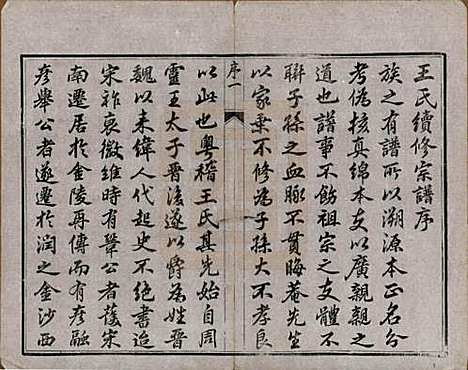 王氏續修宗譜序
族之有譜所以溯源本正名分
考偽核真綿本支以廣親親之
道也譜事不飭祖宗之支體不
聯子孫之血脉不貫晦菴先生
以家乗不修為子孫大不孝良
序一
以此也粤稽王氏其先始自周
靈王太子晋後遂以爵為姓晋
魏以来偉人代起史不絶書迨
宋祚衰微維時有鞏公者護宋
南遷居於金陵再傳而有彦融
彦舉公者遂遷於潤之金沙西